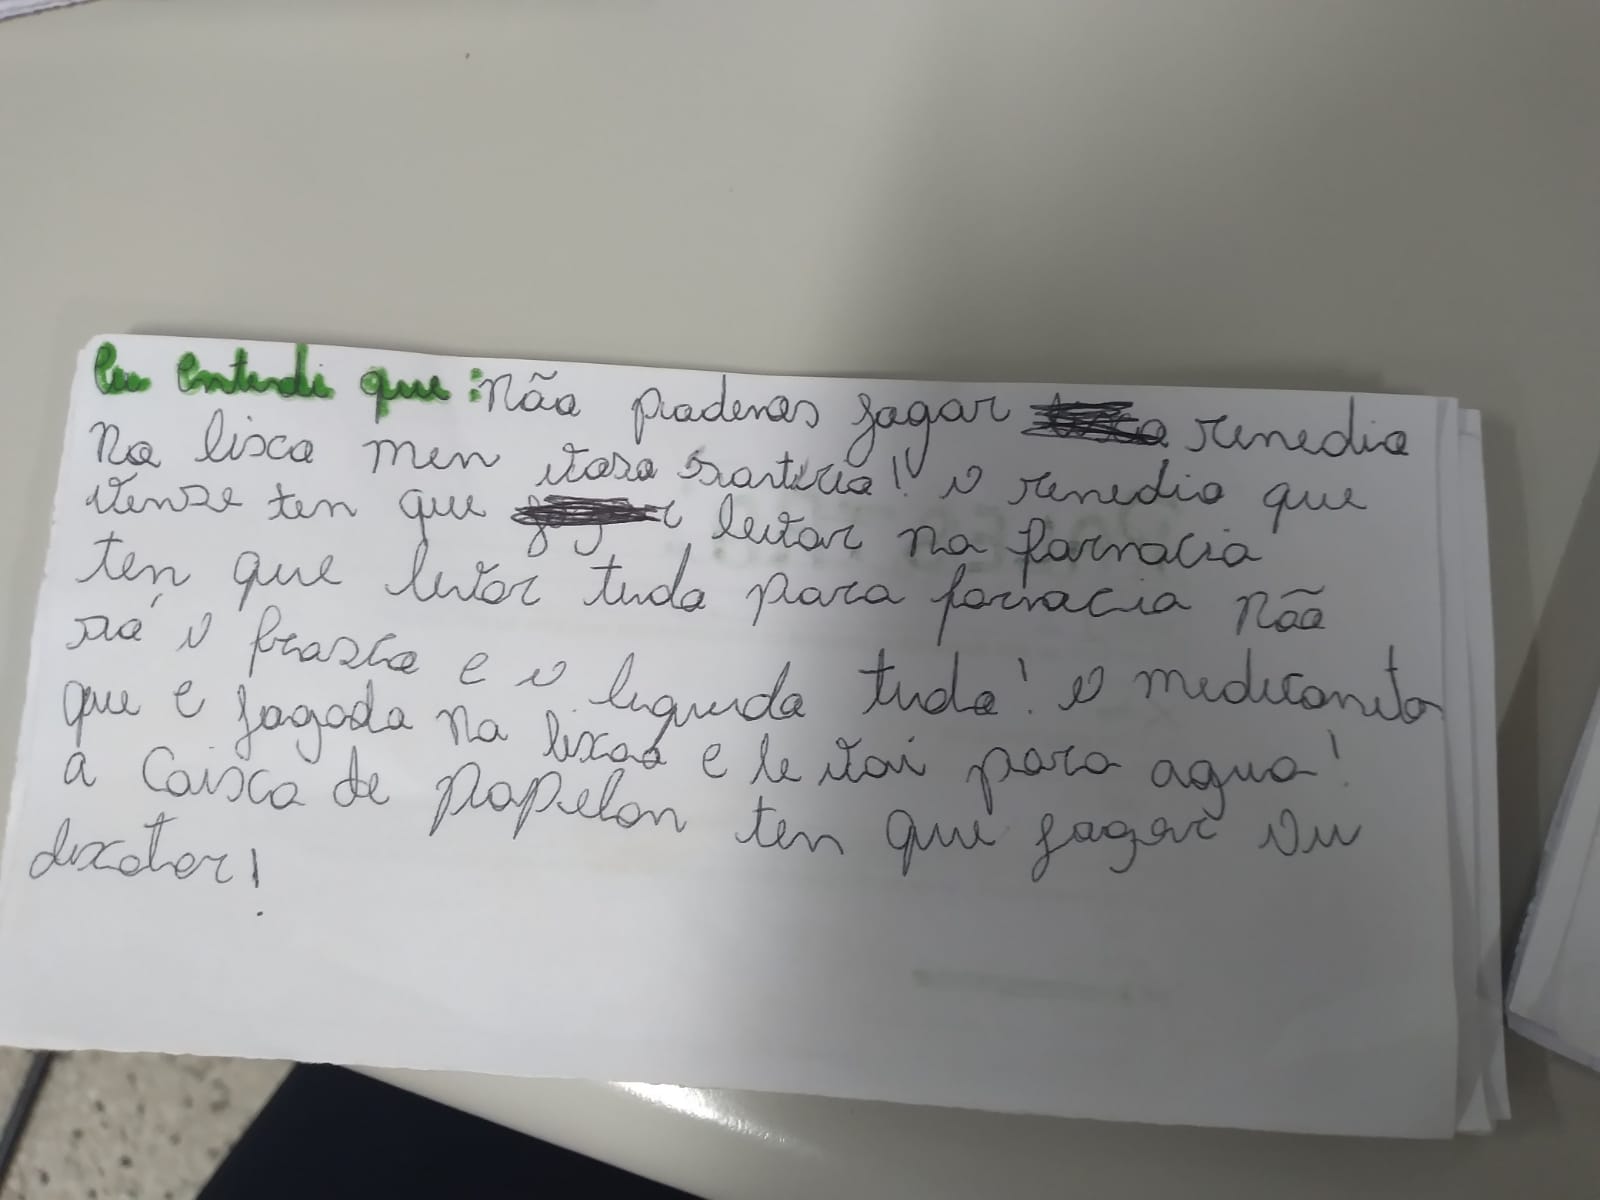 Eu entendi que: não pademos jagar remedio
na lisca men vaso sanitrio! o remedio que
vense ten que levar na farnacia
ten que levar tudo para farnacia não
só o frasco e o liquido tudo! o medicaneto
que e jagado na lixao e le vai para agua!
a caisca de papelon ten que jagar ou